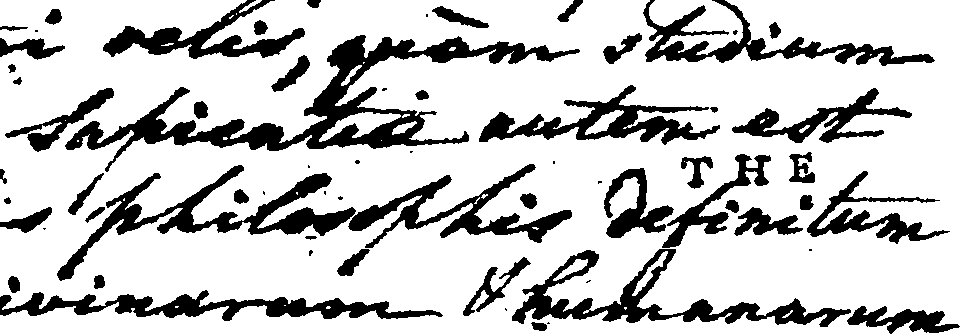 velis, quàm studium
Sapientia autem est
THE
philosophis definitum
divinarum & humanarum